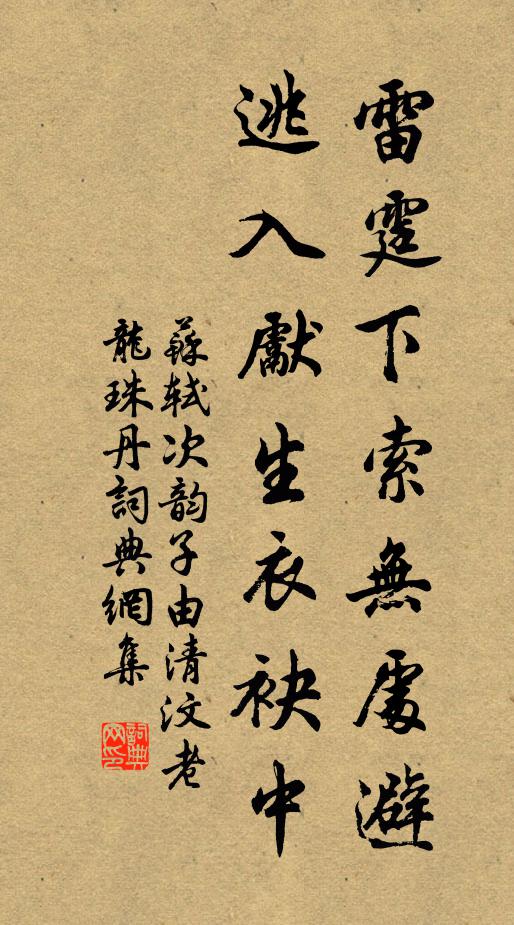 雷霆下索無處避
逃入獻生衣袂中
蘇軾次韵子由清汶老
龍珠丹詞典網集
詞典网印